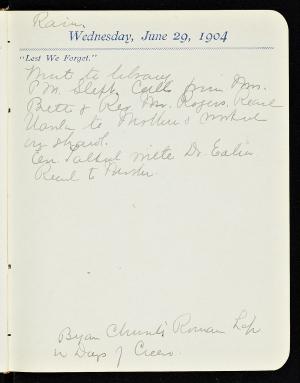 Rain.
Wednesday, June 29, 1904
"Lest We Forget."
Went to library
P.M. Slept, Calls from Mrs.
Betts & Rev. Mr. Rogers, Read
to Mother & worked
on shawl.
Eve. Talked with Dr.
Read to Mother.
Began Church's Roman Life
in Days of Cicero.